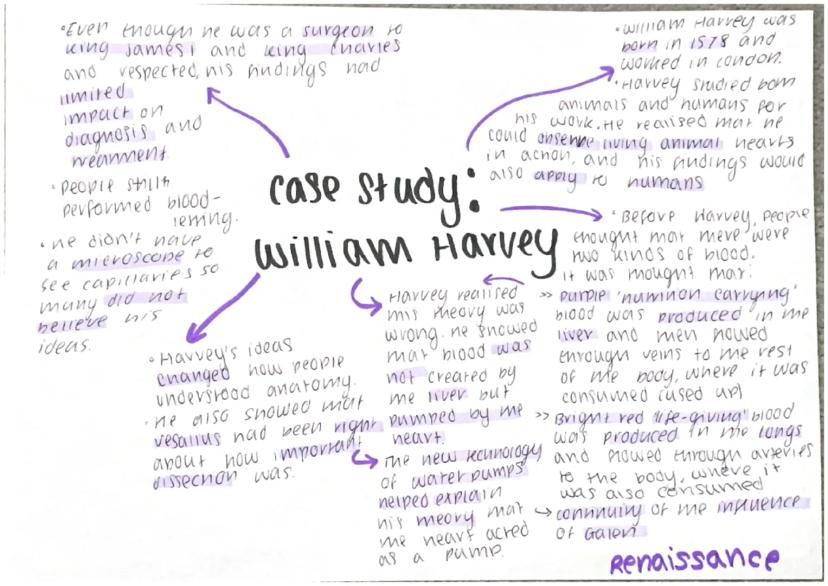 case study:
william Harvey
•Even though he was a surgeon to
king James I and king Charles
and respected, his findings had
limited
impact on
diagnosis and
treatment.
•people still
performed blood-
letting.
•he didn't have
a microscope to
see capillaries so
many did not
believe his
ideas.
•William Harvey was
born in 1578 and
worked in London.
•Harvey studied both
animals and humans for
his work. He realised that he
could observe living animal hearts
in action, and his findings would
also apply to humans
•Before Harvey, people
thought that there were
two kinds of blood.
it was thought that:
>> purple 'nutrition carrying'
blood was produced in the
liver and then flowed
through veins to the rest
of the body, where it was
consumed (used up)
>> Bright red 'life-giving' blood
was produced in the lungs
and flowed through arteries
to the body, where it
was also consumed
↪ continuity of the influence
of Galen
Harvey realised
this theory was
wrong. he showed
that blood was
not created by
the liver but
pumped by the
heart
The new technology
of water pumps
helped explain
his theory that
the heart acted
as a pump.
•Harvey's ideas
changed how people
understood anatomy.
•he also showed that
vesalius had been right
about how important
dissection was.
Renaissance